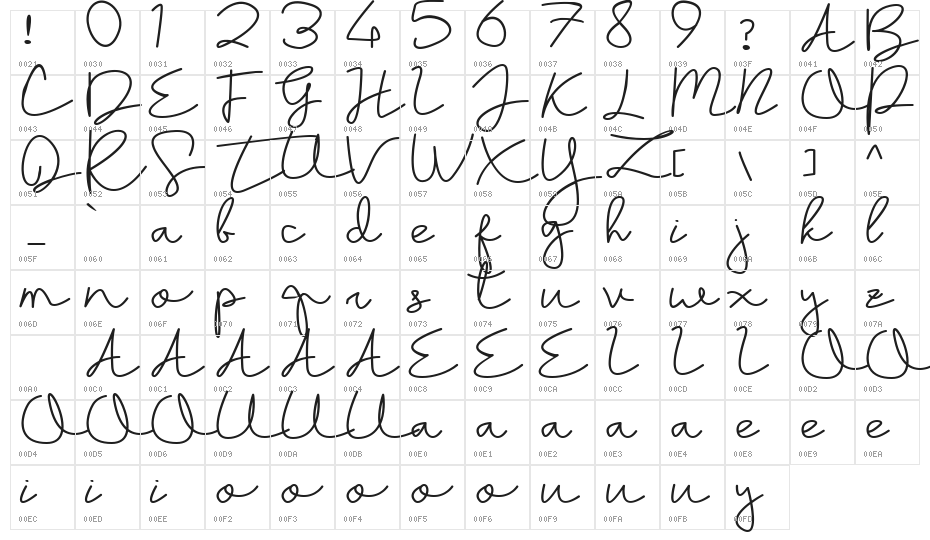 ! 0 1 2 3 4 5 6 7 8 9 ? A B
0021 0030 0031 0032 0033 0034 0035 0036 0037 0038 0039 003F 0041 0042
C D E F G H I J K L M N O P
0043 0044 0045 0046 0047 0048 0049 004A 004B 004C 004D 004E 004F 0050
Q R S T U V W X Y Z [ \ ] ^
0051 0052 0053 0054 0055 0056 0057 0058 0059 005A 005B 005C 005D 005E
_ ` a b c d e f g h i j k l
005F 0060 0061 0062 0063 0064 0065 0066 0067 0068 0069 006A 006B 006C
m n o p q r s t u v w x y z
006D 006E 006F 0070 0071 0072 0073 0074 0075 0076 0077 0078 0079 007A
A A A A A E E E I I I O O
00A0 00C0 00C1 00C2 00C3 00C4 00C8 00C9 00CA 00CC 00CD 00CE 00D2 00D3
O O O U U U a a a a a e e e
00D4 00D5 00D6 00D9 00DA 00DB 00E0 00E1 00E2 00E3 00E4 00E8 00E9 00EA
i i i o o o o o u u u y
00EC 00ED 00EE 00F2 00F3 00F4 00F5 00F6 00F9 00FA 00FB 00FD